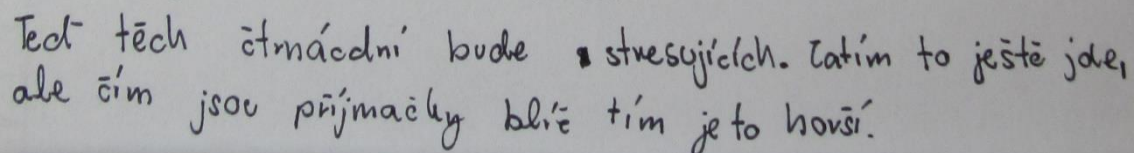 Teď těch čtrnácdní bude stresujících. Zatím to ještě jde,
ale čím jsou příjmačky blíž tím je to horší.